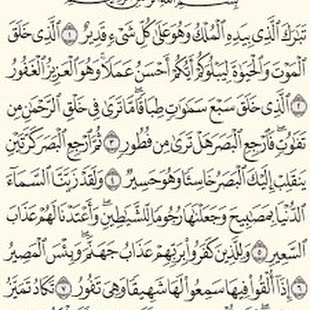 تَبَٰرَكَ ٱلَّذِى بِيَدِهِ ٱلْمُلْكُ وَهُوَ عَلَىٰ كُلِّ شَىْءٍ قَدِيرٌ ١ ٱلَّذِى خَلَقَ
ٱلْمَوْتَ وَٱلْحَيَوٰةَ لِيَبْلُوَكُمْ أَيُّكُمْ أَحْسَنُ عَمَلًا ۚ وَهُوَ ٱلْعَزِيزُ ٱلْغَفُورُ
٢ ٱلَّذِى خَلَقَ سَبْعَ سَمَٰوَٰتٍ طِبَاقًا ۖ مَّا تَرَىٰ فِى خَلْقِ ٱلرَّحْمَٰنِ مِن
تَفَٰوُتٍ ۖ فَٱرْجِعِ ٱلْبَصَرَ هَلْ تَرَىٰ مِن فُطُورٍ ٣ ثُمَّ ٱرْجِعِ ٱلْبَصَرَ كَرَّتَيْنِ
يَنقَلِبْ إِلَيْكَ ٱلْبَصَرُ خَاسِئًا وَهُوَ حَسِيرٌ ٤ وَلَقَدْ زَيَّنَّا ٱلسَّمَآءَ
ٱلدُّنْيَا بِمَصَٰبِيحَ وَجَعَلْنَٰهَا رُجُومًا لِّلشَّيَٰطِينِ ۖ وَأَعْتَدْنَا لَهُمْ عَذَابَ
ٱلسَّعِيرِ ٥ وَلِلَّذِينَ كَفَرُوا۟ بِرَبِّهِمْ عَذَابُ جَهَنَّمَ ۖ وَبِئْسَ ٱلْمَصِيرُ
٦ إِذَآ أُلْقُوا۟ فِيهَا سَمِعُوا۟ لَهَا شَهِيقًا وَهِىَ تَفُورُ ٧ تَكَادُ تَمَيَّزُ